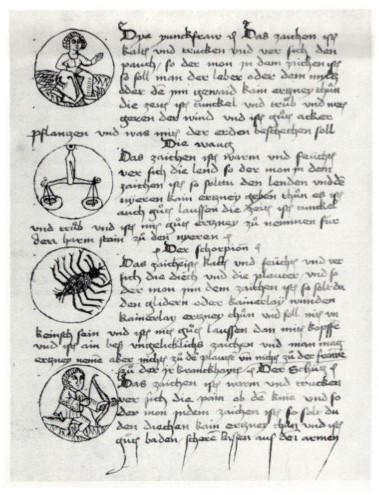 Dye yunckfraw ist Das zaichen ist
kaltt und trucken und ver sich den
pauch / so der mon in dem zaichen ist
so soll man der leber oder dem miltz
oder de inn gewaid kain ertzney thun
die zeit ist tunckel und trüb und
geren der wind und ist gut acker
pflantzen und was mit der erden beschechen soll
Die waug
Das zaichen ist warm und feucht
ver sich die lend so der mon in dem
zaichen ist so soltu den lenden und de
nyeren kain ertzney geben thun es ist
auch gut laussen die zeit ist tunckel
und trüb und ist gut ertzney zu nemmen für
den harm stein zu den nyeren
Der schorpion
Das zaichen ist kaltt und feucht und ver
sich die diech und die plauter und so
der mon inn dem zaichen ist so solt du
den glidern oder kainerlay wunden
kainerlay ertzney thun und soll mit
keinsch sein und ist nit gut laussen dan mit kopffe
und ist ain bess ungelicklich zaichen und man mag
ertzney neme aber nicht zu de plauter un nicht zu der
zu der kranckhayt Der Schütz
Das zaichen ist warm und trucken
ver sich die pain ob de knie und so
der mon in dem zaichen ist so solt du
den diechen kain ertzney thun und ist
gut baden / scheren lassen aus den armen